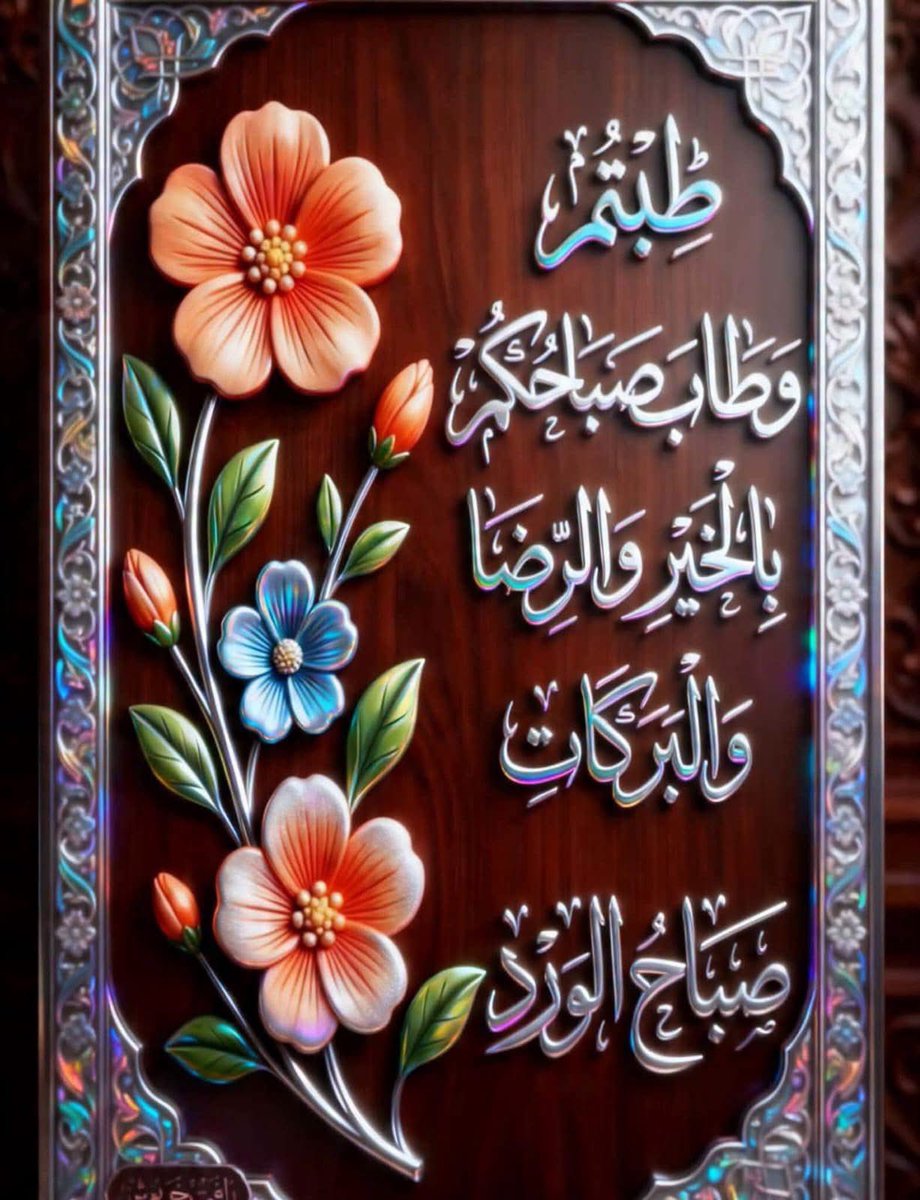 طِبتُمْ
وَطَابَ صَبَاحُكُمْ
بِالْخَيْرِ وَالرِّضَا
وَالْبَرَكَاتِ
صَبَاحُ الوَرْد